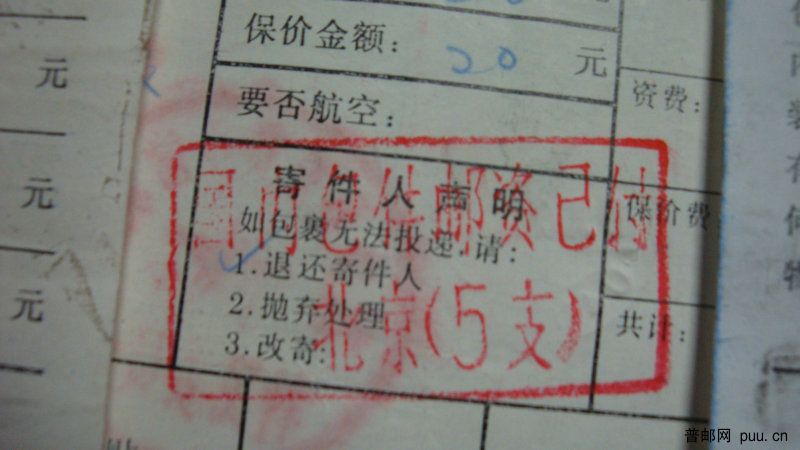 保价金额: 20 元
要否航空:
资费:
寄件人声明
如包裹无法投递,请:
1.退还寄件人
2.抛弃处理
3.改寄:
保价费:
共计:
国内包件邮资已付
北京(5支)
元
元
元
普邮网 puu.cn